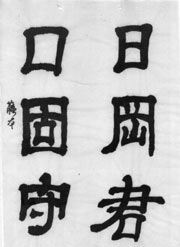 日岡君
口固守